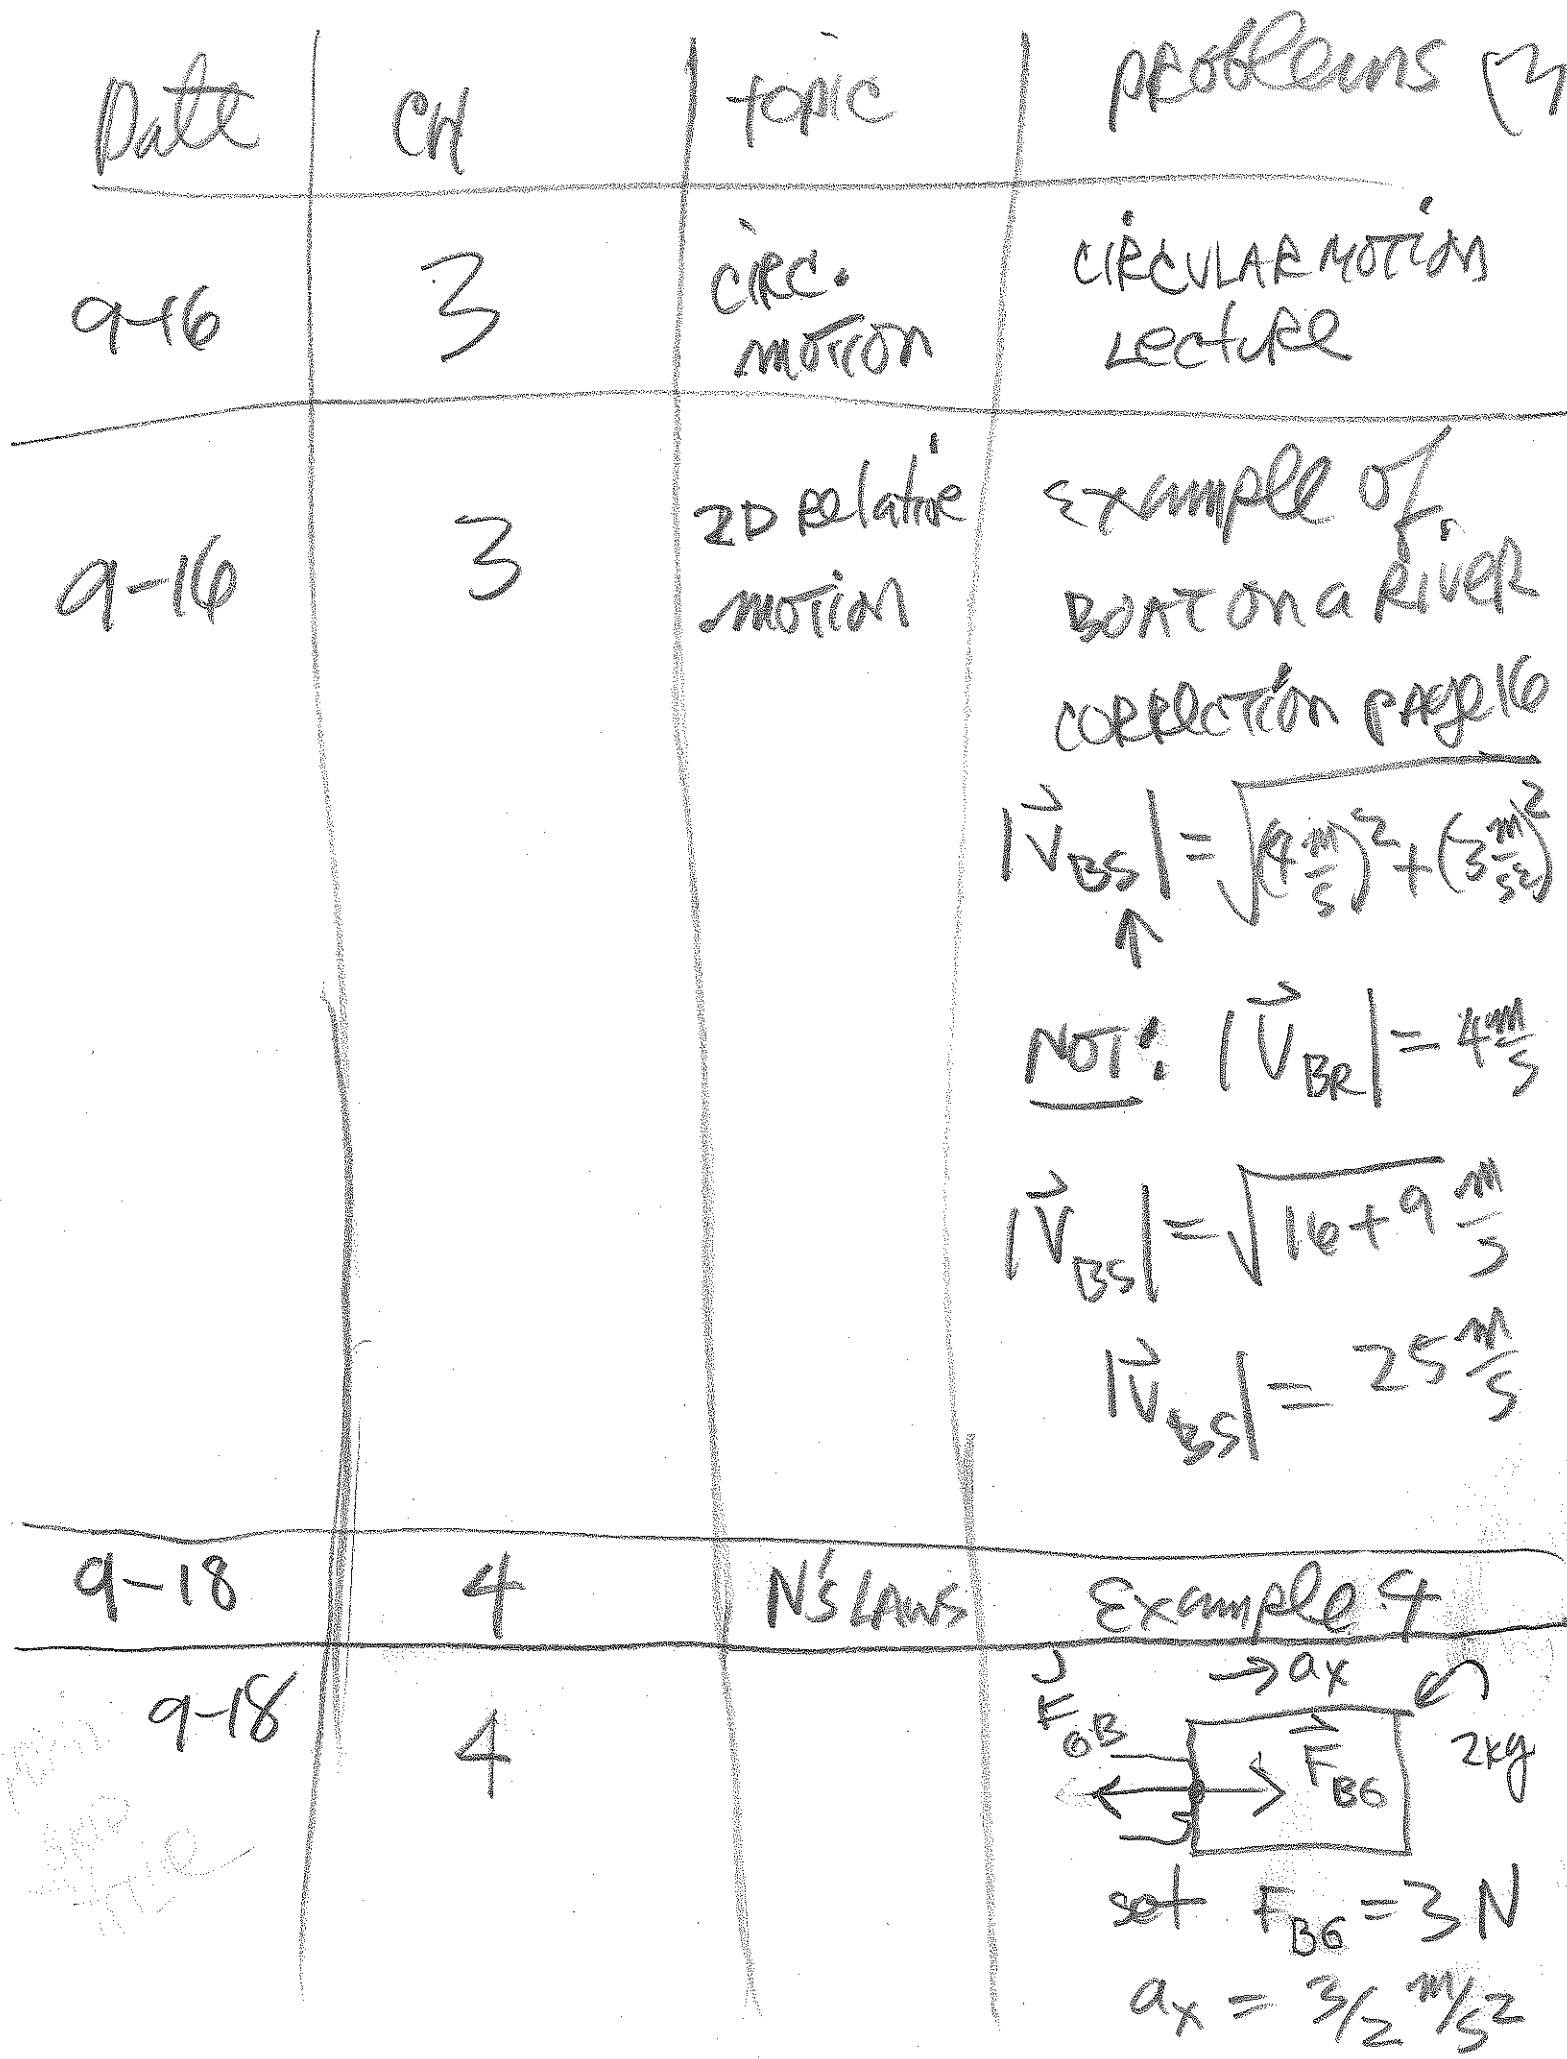 Date CH TOPIC PROBLEMS [3
9-16 3 CIRC. MOTION CIRCULAR MOTION
LECTURE
9-16 3 2D Relative Example of
MOTION BOAT ON a RIVER
CORRECTION PAGE 16
|V⃗_BS| = √(4 m/s)² + (3 m/s)²
↑
NOT: |V⃗_BR| = 4 m/s
|V⃗_BS| = √16 + 9 m/s
|V⃗_BS| = 25 m/s
9-18 4 N'S LAWS Example 4
9-18 4 → a_x
F_GB F⃗_BG 2kg
set F_BG = 3 N
a_x = 3/2 m/s²